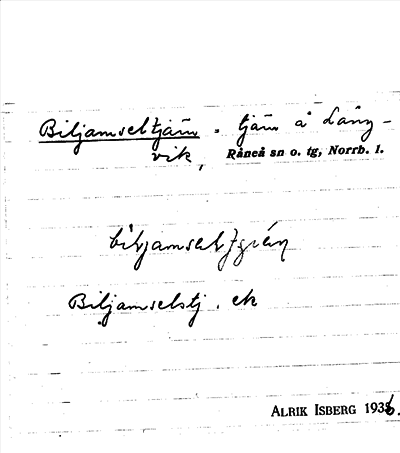 Biljamseltjärn = tjärn å Lång-
vik, Råneå sn o. tg, Norrb. l.
Biljamselstj. ek
ALRIK ISBERG 1936.